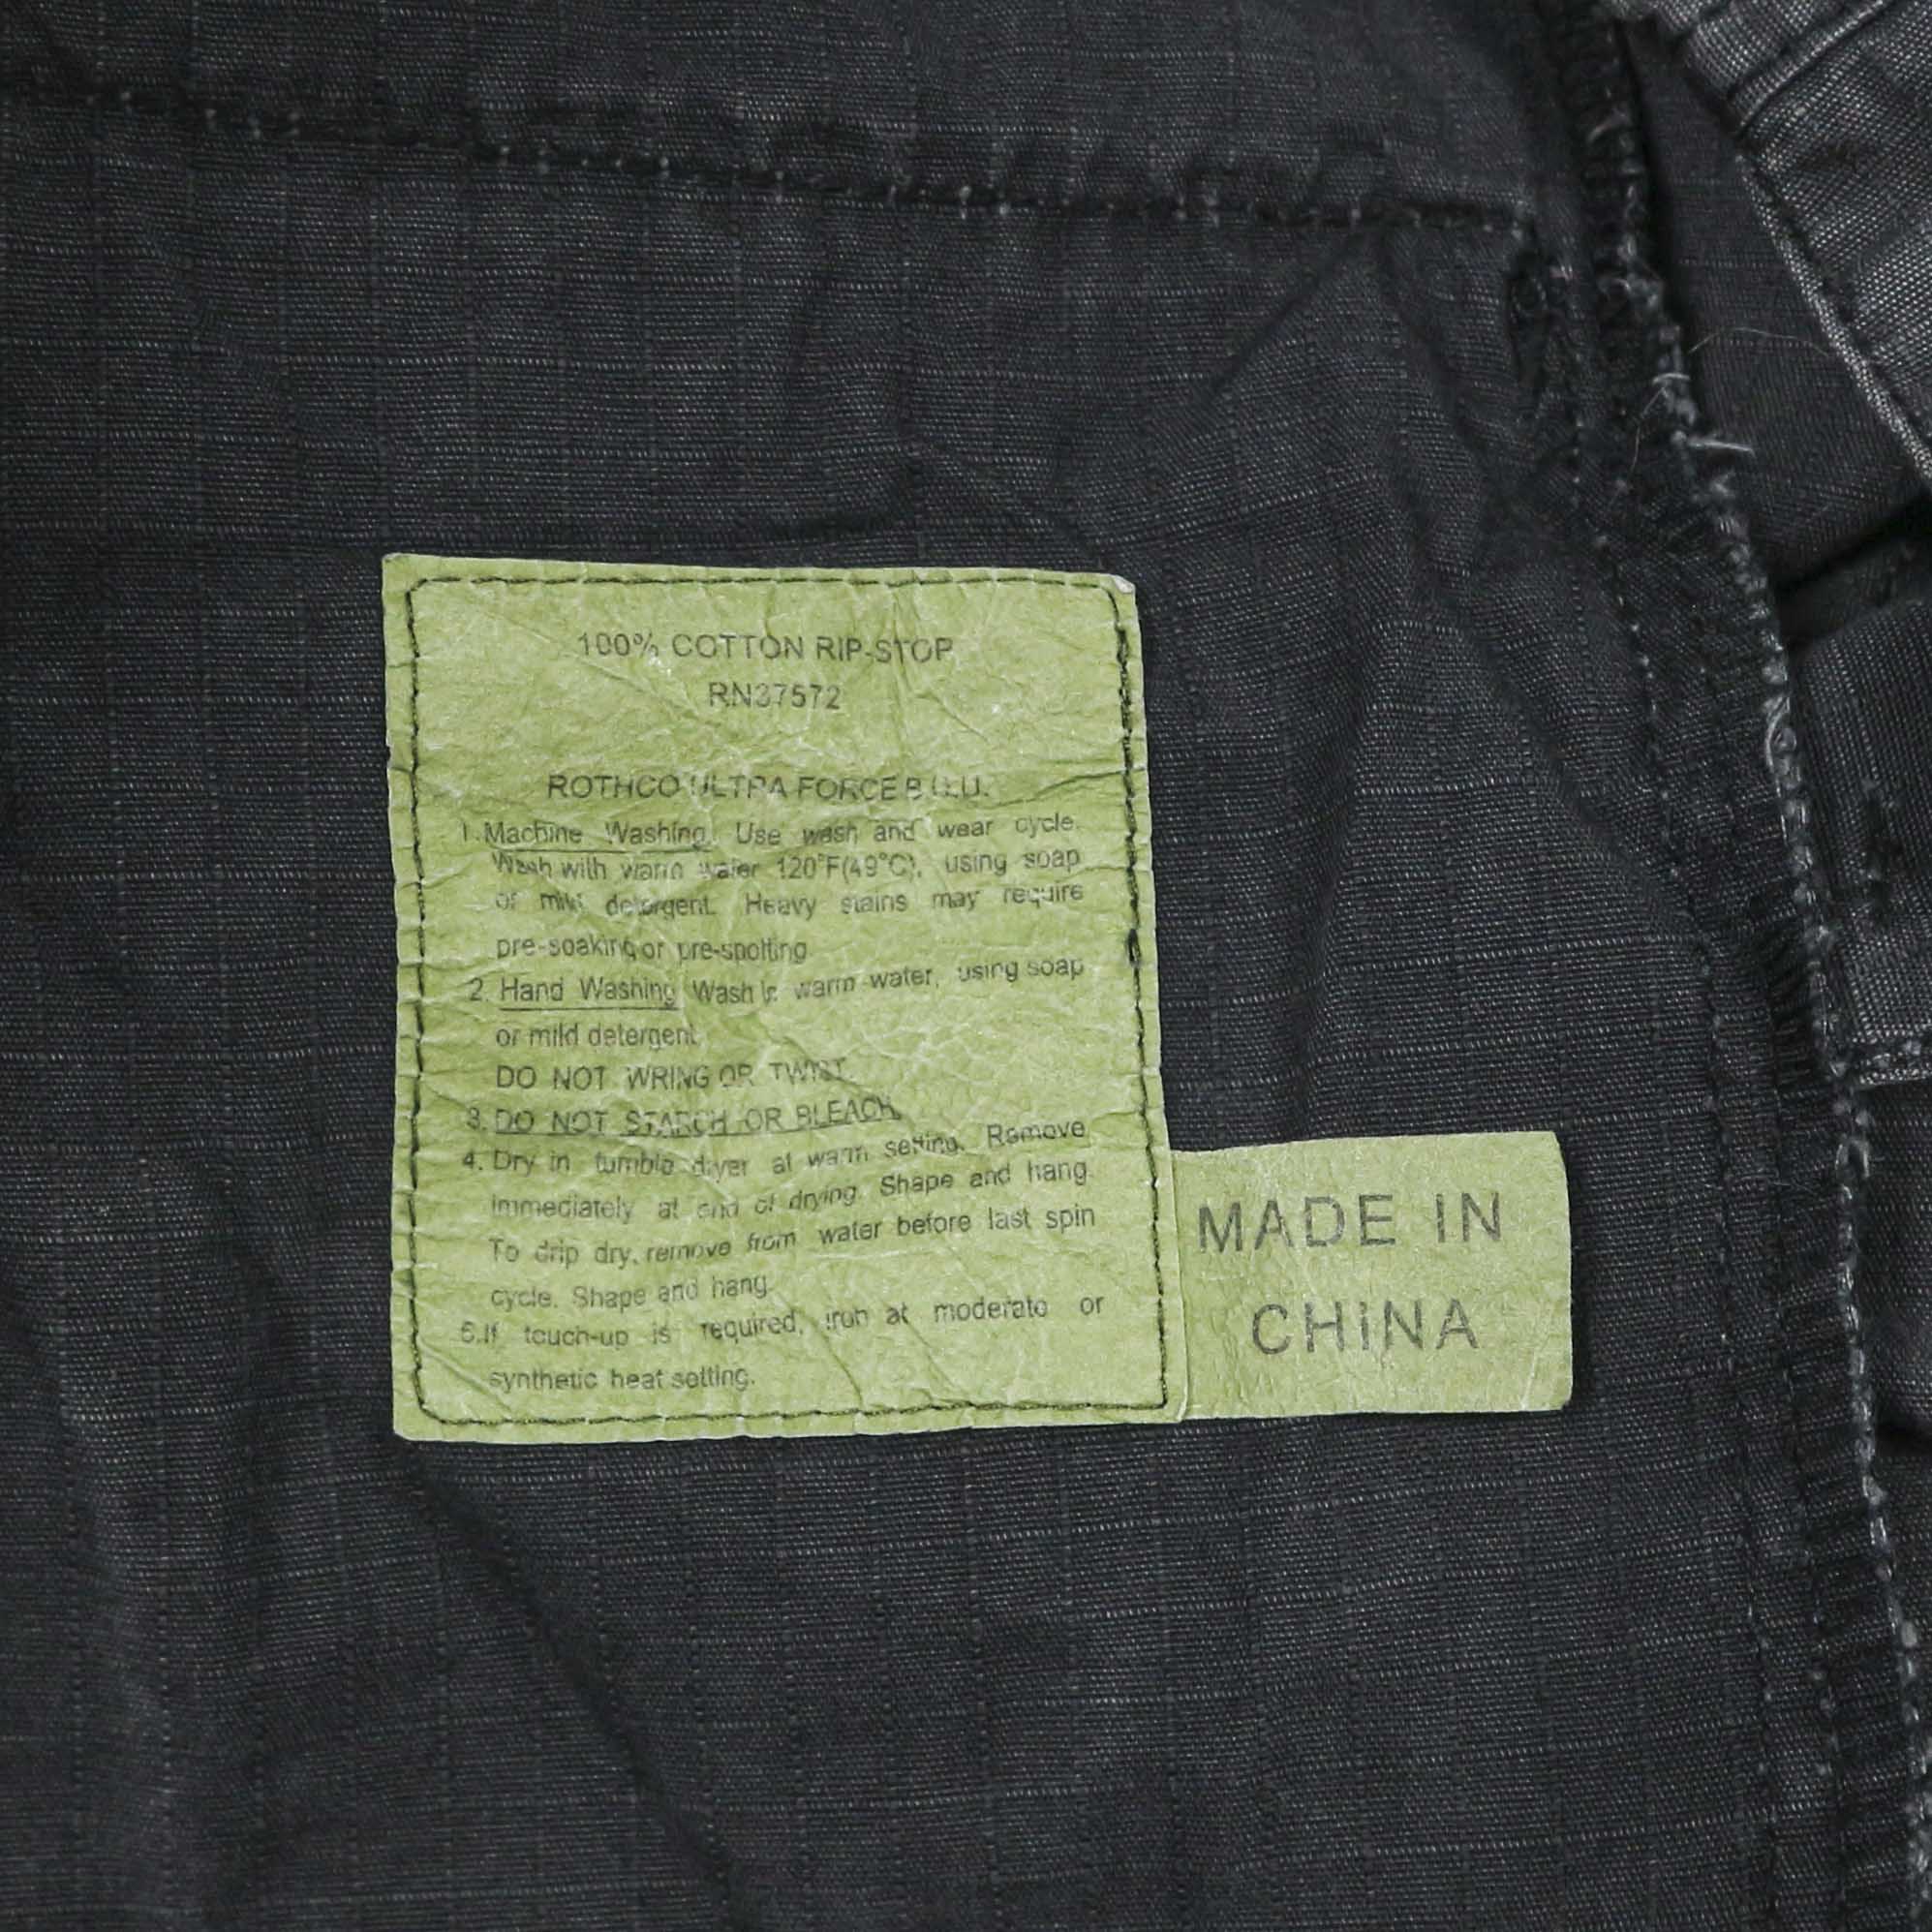 100% COTTON RIP-STOP
RN37572
ROTHCO ULTRA FORCE B.D.U.
1. Machine Washing. Use wash and wear cycle.
Wash with warm water 120°F(49°C), using soap
or mild detergent. Heavy stains may require
pre-soaking or pre-spotting
2. Hand Washing Wash in warm water, using soap
or mild detergent.
DO NOT WRING OR TWIST
3. DO NOT STARCH OR BLEACH.
4. Dry in tumble dryer at warm setting. Remove
immediately at end of drying. Shape and hang.
To drip dry, remove from water before last spin
cycle. Shape and hang.
5.If touch-up is required, iron at moderate or
synthetic heat setting.
MADE IN
CHINA